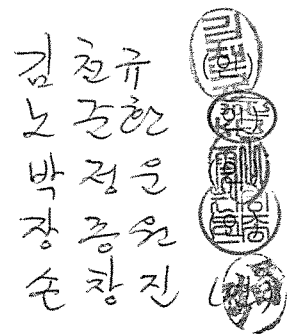 김천규
노준한
박정운
장종원
손창진